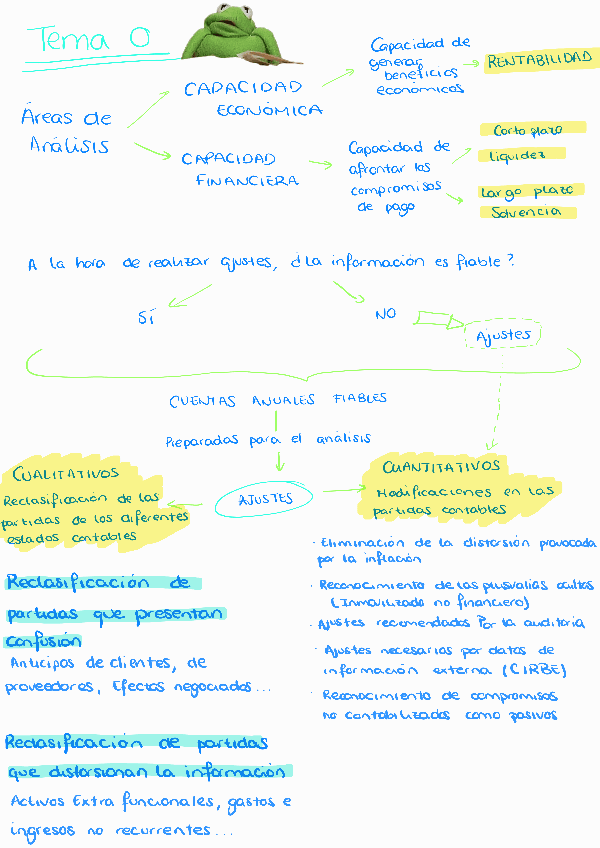 Tema 0
Áreas de
Análisis
CAPACIDAD
ECONÓMICA
Capacidad de
generar
beneficios
económicos
RENTABILIDAD
CAPACIDAD
FINANCIERA
Capacidad de
afrontar los
compromisos
de pago
Corto plazo
liquidez
Largo plazo
Solvencia
A la hora de realizar ajustes, ¿la información es fiable?
SÍ
NO
Ajustes
CUENTAS ANUALES FIABLES
Preparadas para el análisis
AJUSTES
CUALITATIVOS
Reclasificación de las
partidas de los diferentes
estados contables
CUANTITATIVOS
Modificaciones en las
partidas contables
Reclasificación de
partidas que presentan
confusión
Anticipos de clientes, de
proveedores, Efectos negociados...
Reclasificación de partidas
que distorsionan la información
Activos Extra funcionales, gastos e
ingresos no recurrentes...
· Eliminación de la distorsión provocada
por la inflación
· Reconocimiento de las plusvalías ocultas
(Inmovilizado no financiero)
· Ajustes recomendados Por la auditoria
· Ajustes necesarios por datos de
información externa (CIRBE)
· Reconocimiento de compromisos
no contabilizados como pasivos